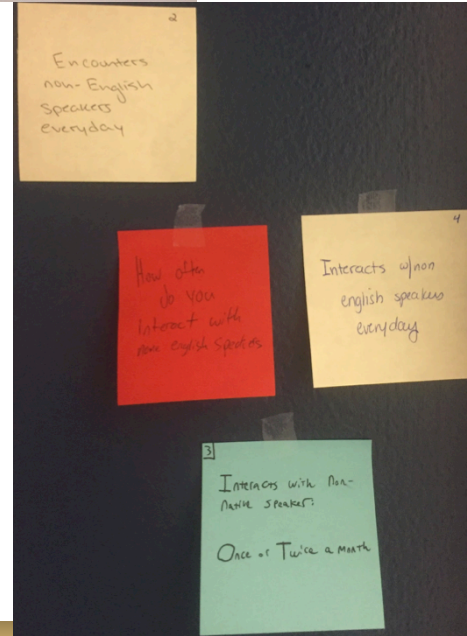 2
Encounters
non-English
Speakers
everyday
How often
do you
Interact with
non english Speakers
4
Interacts w/non
english speakers
everyday
3
Interacts with Non-
Native Speaker:
Once or Twice a Month